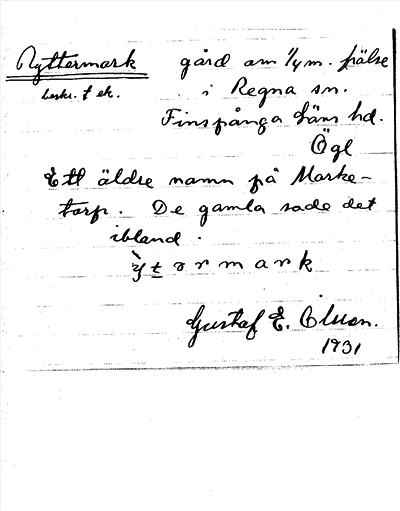 Ryttermark gård om 1/4 m. frälse
beskr. f ek. i Regna sn.
Finspånga läns hd.
Ögl
Ett äldre namn på Marke-
torp. De gamla sade det
ibland.
Gustaf E. Olsson.
1931